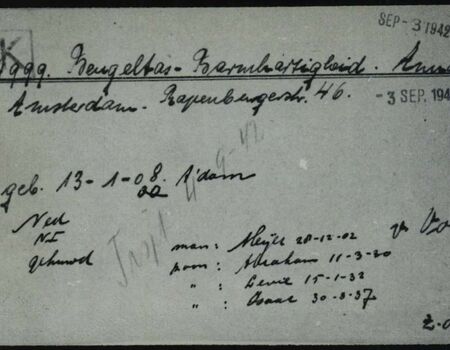 SEP - 3 1942
K
Beugeltas - Barmhartigheid.
Amsterdam. Rapenburgerstr. 46.
- 3 SEP. 194
geb. 13-1-08 A'dam
Ned
N.I
gehuwd
man: Meijer 28-12-02
zoon: Abraham 11-3-30
" : Levie 15-1-32
" : Isaac 30-3-37